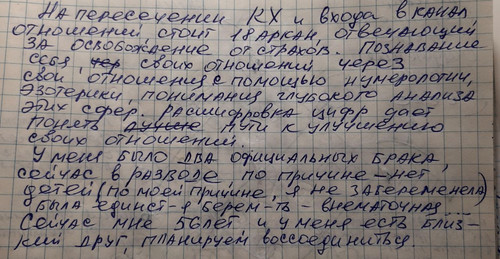 На пересечении КХ и входа в канал
отношений стоит 18 Аркан, отвечающий
за освобождение от страхов. Познавание
себя, своих отношений через
свои отношения с помощью нумерологии,
эзотерики, понимания глубокого анализа
этих сфер. Расшифровка цифр даёт
понять пути к улучшению
своих отношений.
У меня было два официальных брака,
сейчас в разводе по причине - нет
детей (по моей причине, я не забеременела)
была единст-я берем-ть - внематочная
Сейчас мне 56 лет и у меня есть близ-
кий друг, планируем воссоединиться.